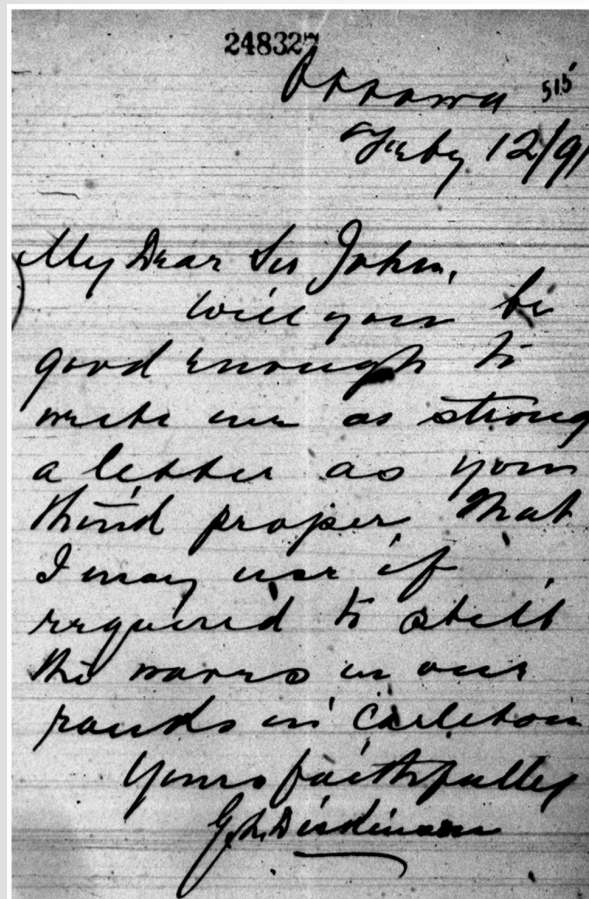 248327
Ottawa 515
Feby 12/91
My Dear Sir John,
Will you be
good enough to
write me as strong
a letter as you
think proper that
I may use if
required to still
the waves in our
ranks in Carleton
Yours faithfully
G. L. Dickinson